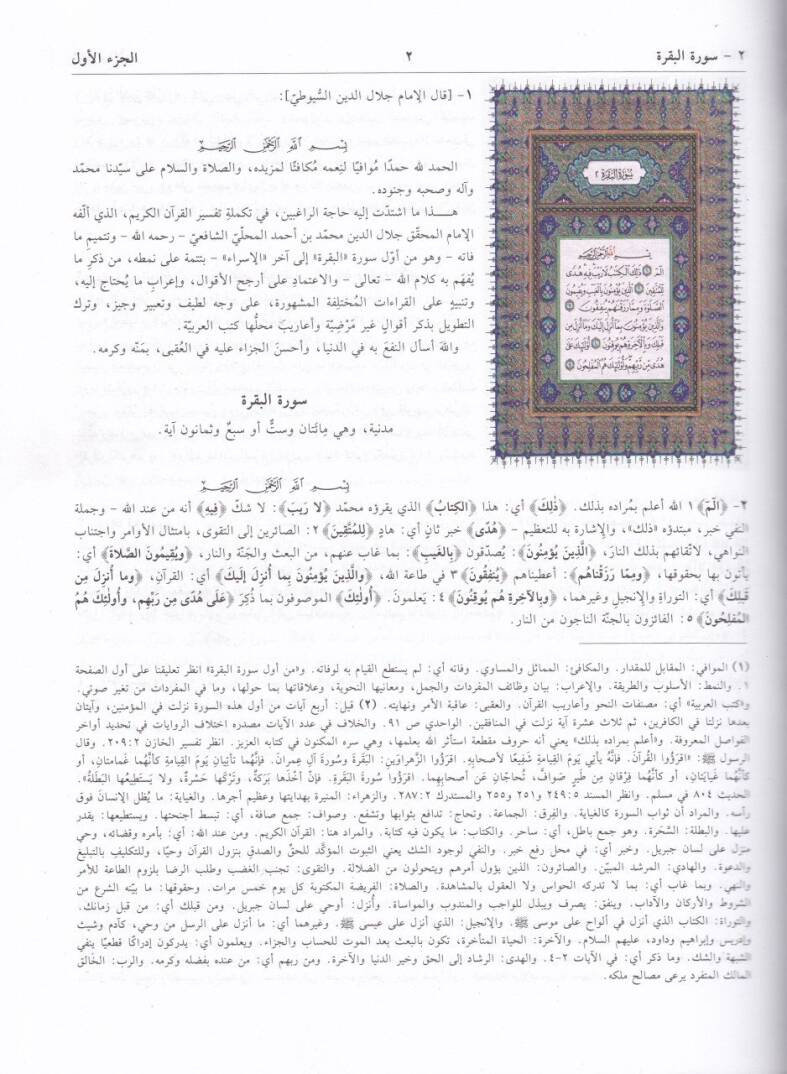 ٢ - سورة البقرة
٢
الجزء الأول
١- [قال الإمام جلال الدين السُّيوطيّ]:
بِسْمِ اللهِ الرَّحْمٰنِ الرَّحِيمِ
الحمد لله حمدًا مُوافيًا لنِعمه مُكافئًا لمزيده، والصلاة والسلام على سيّدنا محمّد
وآله وصحبه وجنوده.
هــذا ما اشتدّت إليه حاجة الراغبين، في تكملةِ تفسير القرآن الكريم، الذي ألّفه
الإمام المحقّق جلال الدين محمّد بن أحمد المحلّيّ الشافعيّ - رحمه الله - وتتميمِ ما
فاته - وهو من أوّل سورة «البقرة» إلى آخر «الإسراء» - بتتمة على نمطه، من ذكرِ ما
يُفهَم به كلام الله - تعالى - والاعتمادِ على أرجح الأقوال، وإعرابِ ما يُحتاج إليه،
وتنبيهٍ على القراءات المُختلِفة المشهورة، على وجه لطيف وتعبير وجيز، وترك
التطويل بذكر أقوالٍ غير مَرْضيّة وأعاريبَ محلُّها كتب العربيّة.
واللهَ أسأل النفعَ به في الدنيا، وأحسنَ الجزاء عليه في العُقبى، بمَنّه وكرمه.
سورة البقرة
مدنية، وهي مِائتان وستٌّ أو سبعٌ وثمانون آية.
سُورَةُ البَقَرَةِ ٢
بِسْمِ اللهِ الرَّحْمٰنِ الرَّحِيمِ
الٓمٓ ١ ذَٰلِكَ الْكِتَٰبُ لَا رَيْبَ فِيهِ هُدًى
لِّلْمُتَّقِينَ ٢ الَّذِينَ يُؤْمِنُونَ بِالْغَيْبِ وَيُقِيمُونَ
الصَّلَوٰةَ وَمِمَّا رَزَقْنَٰهُمْ يُنفِقُونَ ٣
وَالَّذِينَ يُؤْمِنُونَ بِمَا أُنزِلَ إِلَيْكَ وَمَا أُنزِلَ مِن
قَبْلِكَ وَبِالْآخِرَةِ هُمْ يُوقِنُونَ ٤ أُولَٰئِكَ عَلَىٰ
هُدًى مِّن رَّبِّهِمْ وَأُولَٰئِكَ هُمُ الْمُفْلِحُونَ ٥
بِسْمِ اللهِ الرَّحْمٰنِ الرَّحِيمِ
٢- ﴿الٓمٓ﴾ ١ الله أعلم بمُراده بذلك. ﴿ذٰلِكَ﴾ أي: هذا ﴿الكِتابُ﴾ الذي يقرؤه محمّد ﴿لا رَيبَ﴾: لا شكّ ﴿فِيهِ﴾ أنه من عند الله - وجملة
النفي خبر، مبتدؤه «ذلك»، والإشارة به للتعظيم - ﴿هُدًى﴾ خبر ثانٍ أي: هادٍ ﴿لِلمُتَّقِينَ﴾ ٢: الصائرين إلى التقوى، بامتثال الأوامر واجتناب
النواهي، لاتّقائهم بذلك النارَ، ﴿الَّذِينَ يُؤْمِنُونَ﴾: يُصدّقون ﴿بِالغَيبِ﴾: بما غاب عنهم، من البعث والجنّة والنار، ﴿ويُقِيمُونَ الصَّلاةَ﴾ أي:
يأتون بها بحقوقها، ﴿ومِمّا رَزَقْناهُم﴾: أعطيناهم ﴿يُنفِقُونَ﴾ ٣ في طاعة الله، ﴿والَّذِينَ يُؤْمِنُونَ بِما أُنزِلَ إلَيكَ﴾ أي: القرآنِ، ﴿وما أُنزِلَ مِن
قَبلِكَ﴾ أي: التوراةِ والإنجيلِ وغيرهما، ﴿وبِالآخِرةِ هُم يُوقِنُونَ﴾ ٤: يَعلمونَ. ﴿أُولٰئِكَ﴾ الموصوفون بما ذُكِرَ ﴿عَلَى هُدًى مِن رَبِّهِم، وأُولٰئِكَ هُمُ
المُفلِحُونَ﴾ ٥: الفائزون بالجنّة الناجون من النار.
(١) الموافي: المقابل للمقدار. والمكافئ: المماثل والمساوي. وفاته أي: لم يستطع القيام به لوفاته. و«من أول سورة البقرة» انظر تعليقنا على أول الصفحة
١. والنمط: الأسلوب والطريقة. والإعراب: بيان وظائف المفردات والجمل، ومعانيها النحوية، وعلاقاتها بما حولها، وما في المفردات من تغير صوتي.
و«كتب العربية» أي: مصنفات النحو وأعاريب القرآن. والعقبى: عاقبة الأمر ونهايته. (٢) قيل: أربع آيات من أول هذه السورة نزلت في المؤمنين، وآيتان
بعدها نزلتا في الكافرين، ثم ثلاث عشرة آية نزلت في المنافقين. الواحدي ص ٩١. والخلاف في عدد الآيات مصدره اختلاف الروايات في تحديد أواخر
الفواصل المعروفة. و«أعلم بمراده بذلك» يعني أنه حروف مقطعة استأثر الله بعلمها، وهي سره المكنون في كتابه العزيز. انظر تفسير الخازن ٢:٢٠٩. وقال
الرسول ﷺ: «اقرَؤُوا القُرآنَ. فإنَّه يأتي يَومَ القِيامةِ شَفِيعًا لأصحابِهِ. اقرَؤُوا الزَّهراوَينِ: البَقَرةَ وسُورةَ آلِ عِمرانَ. فإنَّهُما تأتِيانِ يَومَ القِيامةِ كأنَّهُما غَمامتانِ، أو
كأنَّهُما غَيايَتانِ، أو كأنَّهُما فِرْقانِ مِن طَيرٍ صَوافَّ، تُحاجّانِ عَن أصحابِهِما. اقرَؤُوا سُورةَ البَقَرةِ. فإنَّ أخْذَها بَرَكةٌ، وتَرْكَها حَسْرةٌ، ولا يَستطِيعُها البَطَلةُ».
الحديث ٨٠٤ في مسلم. وانظر المسند ٢٤٩:٥ و٢٥١ و٢٥٥ والمستدرك ٢٨٧:٢. والزهراء: المنيرة بهدايتها وعظيم أجرها. والغياية: ما يُظل الإنسانَ فوق
رأسه. والمراد أن ثواب السورة كالغياية. والفِرق: الجماعة. وتحاج: تدافع بثوابها وتشفع. وصواف: جمع صافة، أي: تبسط أجنحتها. ويستطيعها: يقدر
عليها. والبطلة: السَّحَرة. وهو جمع باطل، أي: ساحر. والكتاب: ما يكون فيه كتابة. والمراد هنا: القرآن الكريم. ومن عند الله: أي: بأمره وقضائه، وحي
منزل على لسان جبريل. وخبر أي: في محل رفع خبر. والنفي لوجود الشك يعني الثبوت المؤكَّد للحقِّ والصدقِ بنزول القرآن وحيًا، وللتكليف بالتبليغ
والدعوة. والهادي: المرشد المبيّن. والصائرون: الذين يؤول أمرهم ويتحولون من الضلالة. والتقوى: تجنب الغضب وطلب الرضا بلزوم الطاعة للأمر
والنهي. وبما غاب أي: بما لا تدركه الحواس ولا العقول بالمشاهدة. والصلاة: الفريضة المكتوبة كل يوم خمس مرات. وحقوقها: ما بيّنه الشرع من
الشروط والأركان والآداب. وينفق: يصرف ويبذل للواجب والمندوب والمواساة. وأُنزل: أوحي على لسان جبريل. ومن قبلك أي: من قبل زمانك.
والتوراة: الكتاب الذي أنزل في ألواح على موسى ﷺ. والإنجيل: الذي أنزل على عيسى ﷺ. وغيرهما أي: ما أنزل على الرسل من وحي، كآدم وشيث
وإدريس وإبراهيم وداود، عليهم السلام. والآخرة: الحياة المتأخرة، تكون بالبعث بعد الموت للحساب والجزاء. ويعلمون أي: يدركون إدراكًا قطعيًا ينفي
الشبهة والشك. وما ذكر أي: في الآيات ٢-٤. والهدى: الرشاد إلى الحق وخير الدنيا والآخرة. ومن ربهم أي: من عنده بفضله وكرمه. والرب: الخالق
المالك المتفرد يرعى مصالح ملكه.